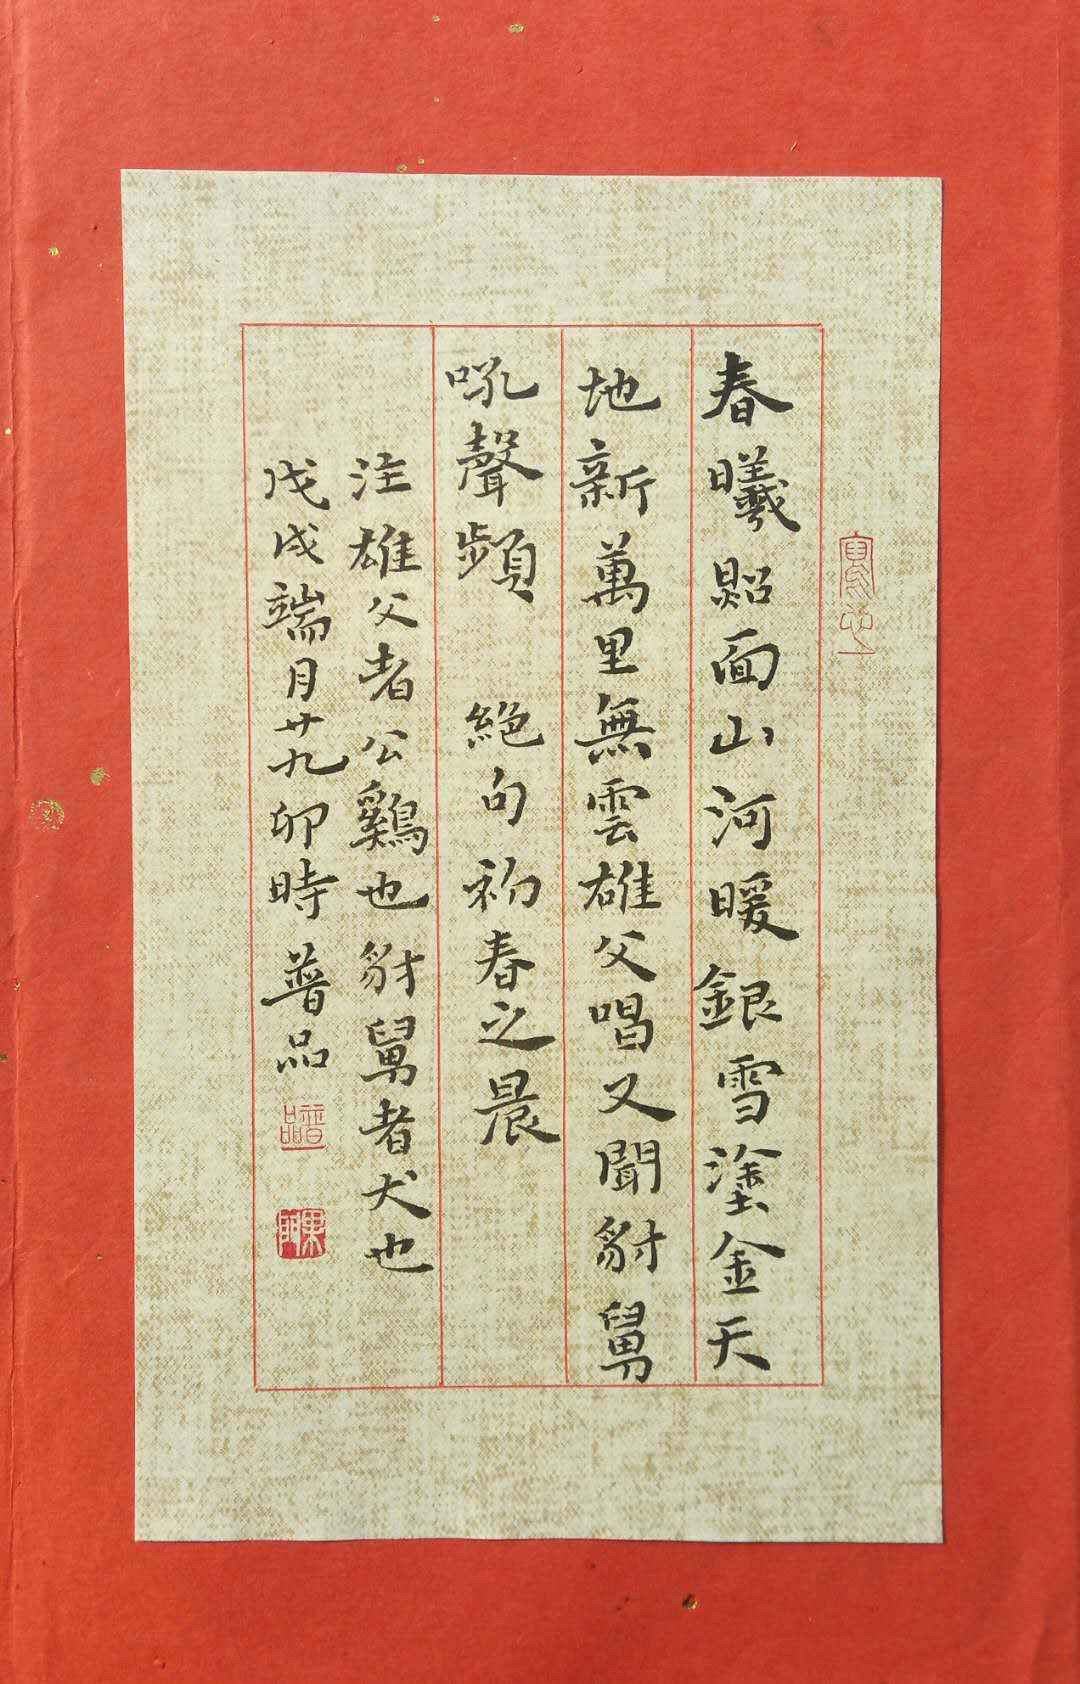 春曦照面山河暖銀雪塗金天
地新萬里無雲雄父唱又聞豺舅
吼聲頻　絕句初春之晨
注雄父者公鷄也豺舅者犬也
戊戌端月廿九卯時普品
普品